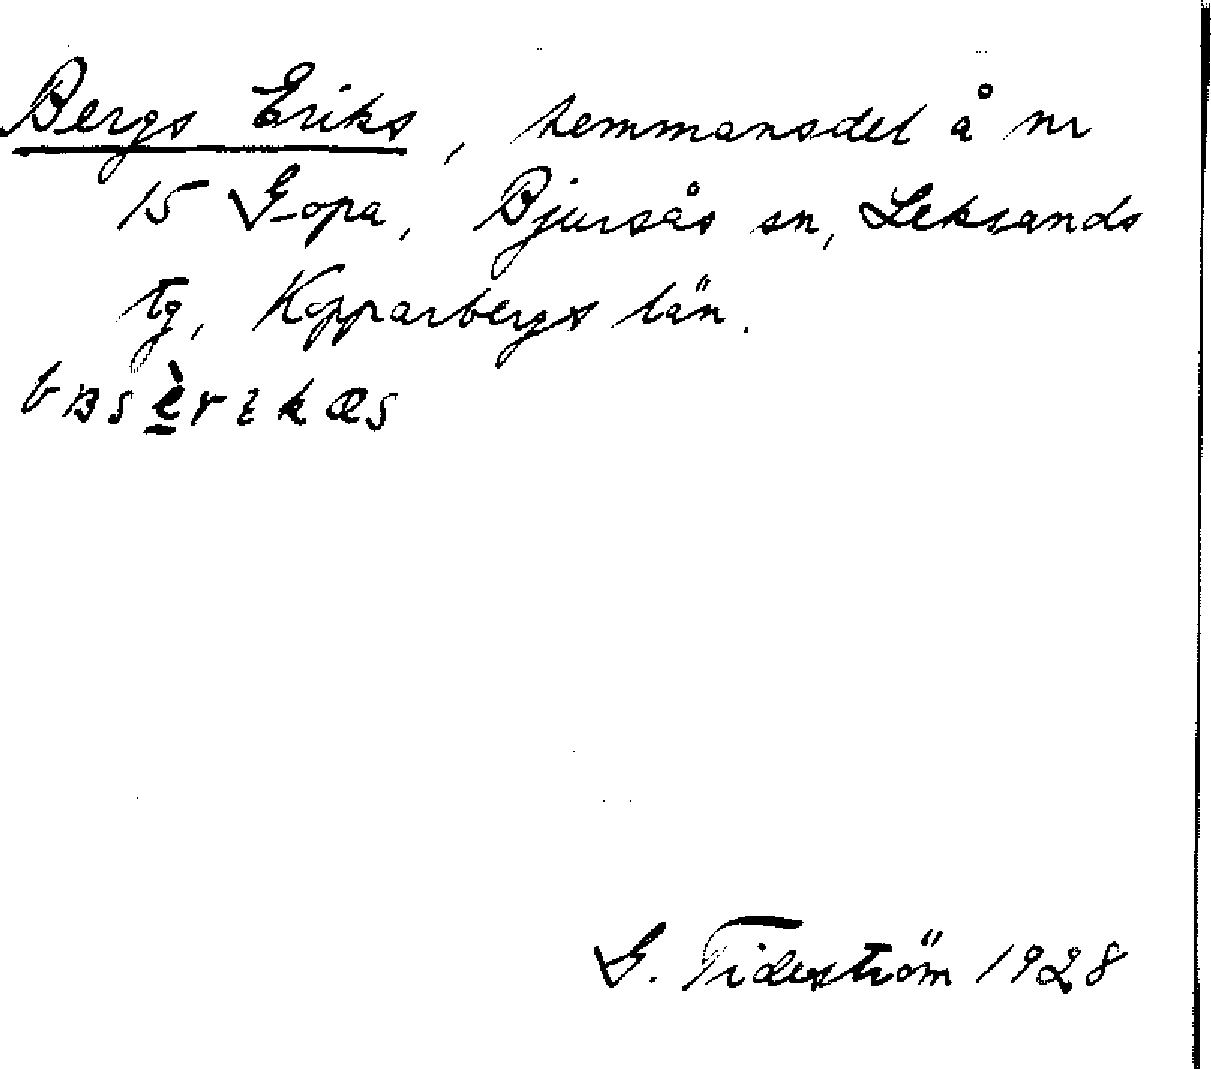 Bergs Eriks, hemmansdel å nr
15 Gopa, Bjursås sn, Leksands
tg, Kopparbergs län.
G. Tideström 1928